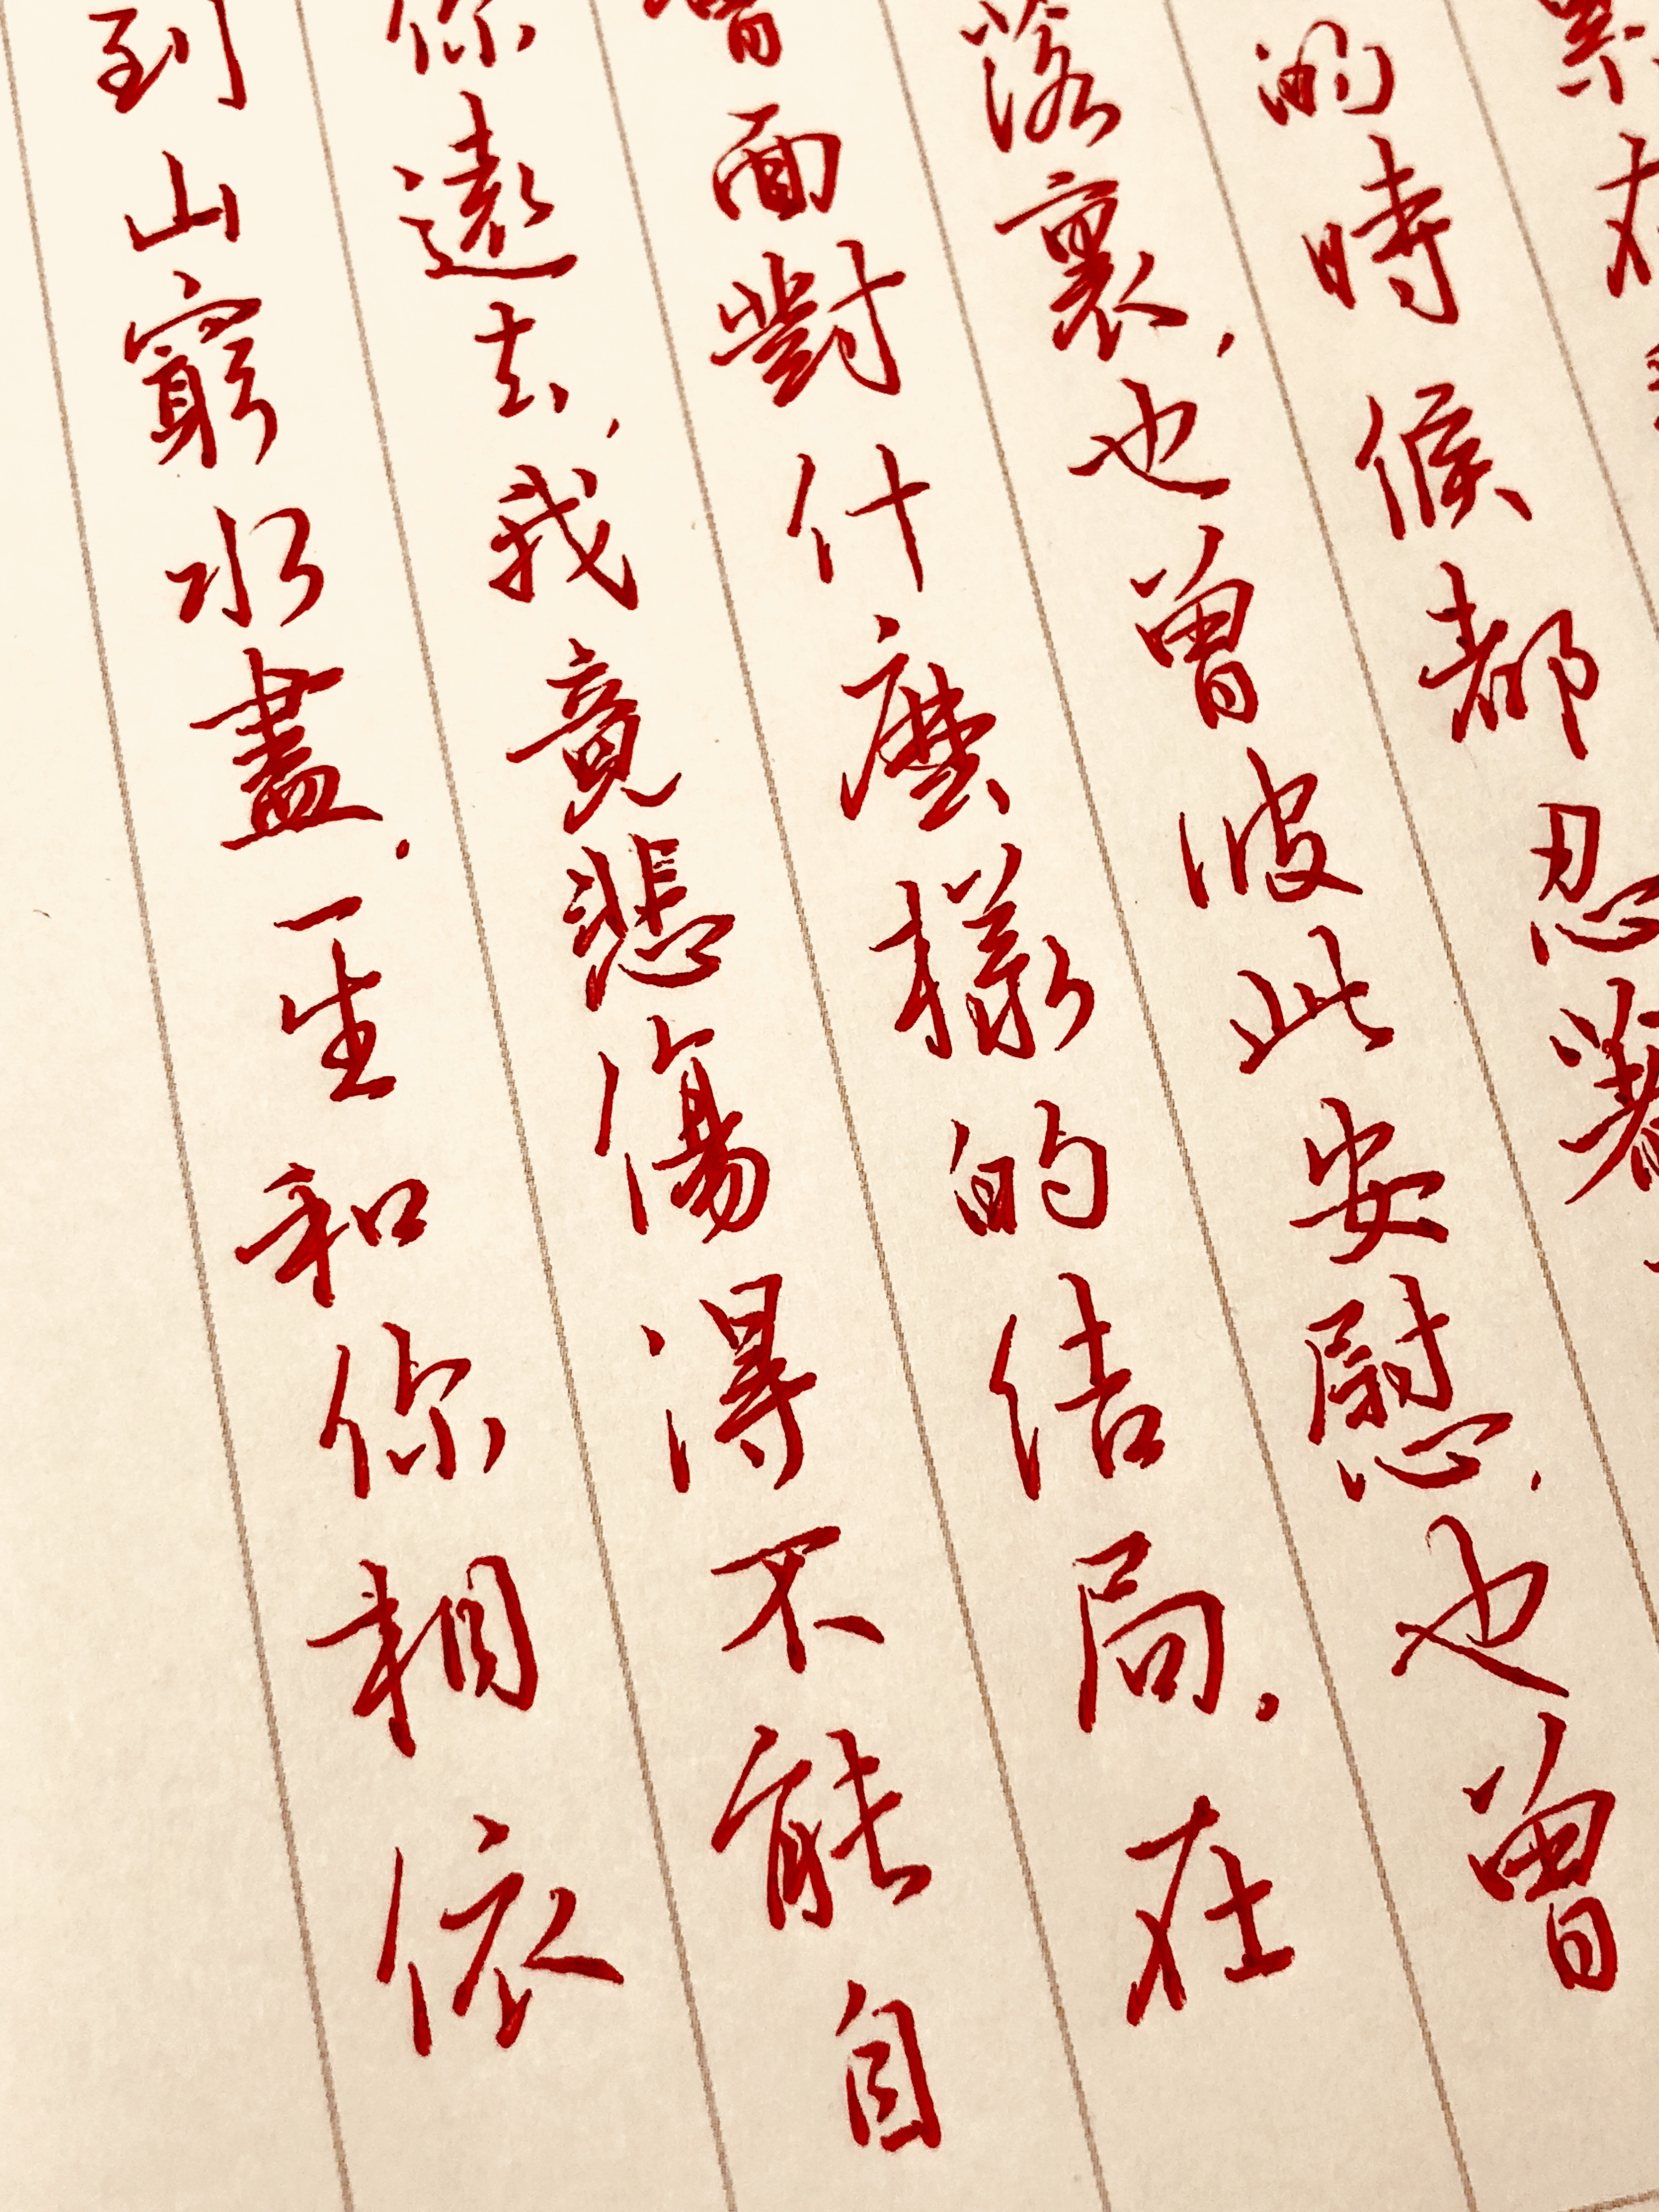 忍著
的時候都忍
落裏，也曾彼此安慰，也曾
曾面對什麼樣的結局。在
你遠去，我竟悲傷得不能自
到山窮水盡．一生和你相依